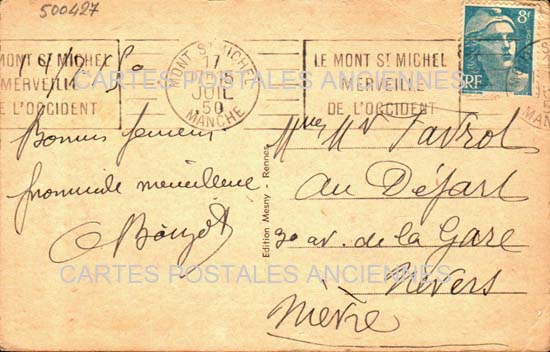 500427
MONT ST MICHEL
MERVEILLE
DE L'OCCIDENT
MONT ST MICHEL
17
JUIL
50
MANCHE
LE MONT ST MICHEL
MERVEILLE
DE L'OCCIDENT
8f
RF
CARTES POSTALES ANCIENNES
Bonnes
promenade merveilleuse
Edition Mesny - Rennes
Mme Mr
au Départ
30 av. de la Gare
Nevers
Nièvre
CARTES POSTALES ANCIENNES